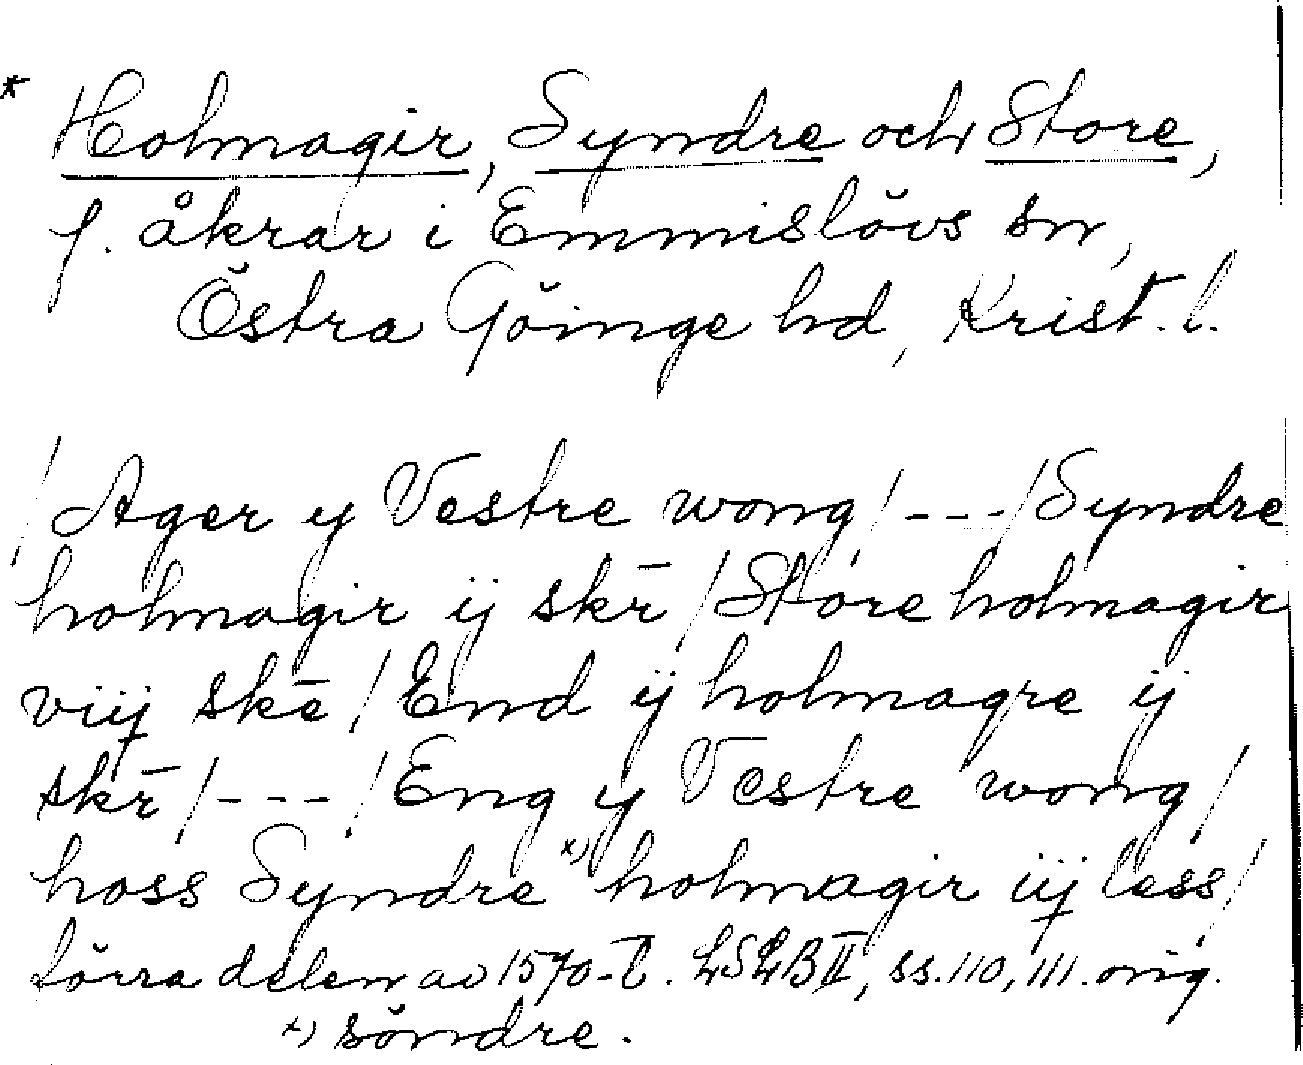 * Holmagir, Syndre och Store,
f. åkrar i Emmislövs sn,
Östra Göinge hd, Krist. l.
/Ager y Vestre wong/ --- /Syndre
holmagir ij skr̄ /Store holmagir
viij skē / End ij holmagre ij
skr̄ / --- / Eng y Vestre wong /
hoss Syndre x) holmagir iij less /
förra delen av 1570-t. LSLB II, ss. 110, 111. orig.
x) söndre.